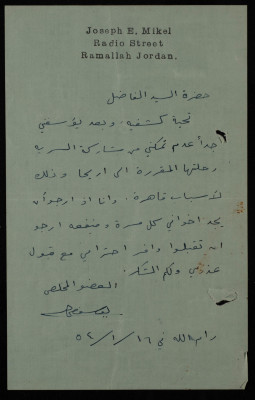 Joseph E. Mikel
Radio Street
Ramallah Jordan.
حضرة السيد الفاضل
تحية كشفيه وبعد يؤسفني
جداً عدم تمكني من مشاركة السرية
رحلتها المقررة الى اريحا وذلك
لأسباب قاهرة. وانا اذ ارجو أن
يجد اخواني كل مسرة ومنفعه ارجو
ان تقبلوا وافر احترامي مع قبول
عذري ولكم الشكر.
العضو المخلص
رام الله في ١٦/١/٥٢